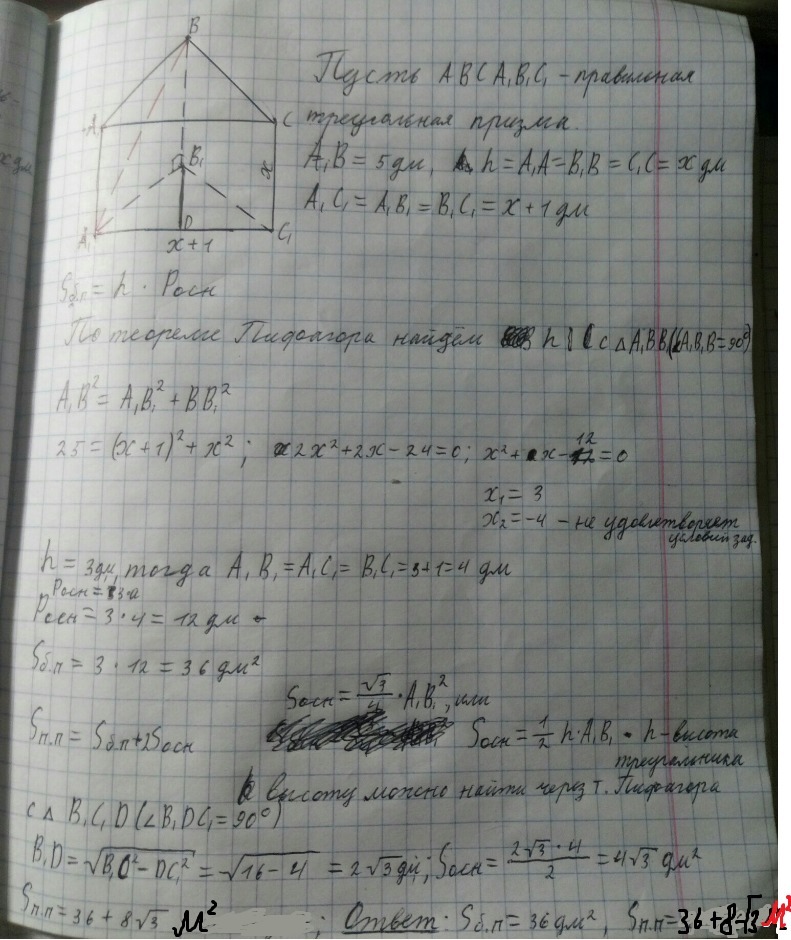 B
A
C
B₁
x
A₁
D
C₁
x+1
Пусть ABCA₁B₁C₁ - правильная
треугольная призма.
A₁B = 5 дм, h = A₁A = B₁B = C₁C = x дм
A₁C₁ = A₁B₁ = B₁C₁ = x + 1 дм
Sб.п = h · Pосн
По теореме Пифагора найдём h с △A₁BB₁(∠A₁B₁B=90°)
A₁B² = A₁B₁² + BB₁²
25 = (x+1)² + x²; 2x²+2x-24=0; x²+x-12=0
x₁ = 3
x₂ = -4 - не удовлетворяет
условий зад.
h = 3дм, тогда A₁B₁ = A₁C₁ = B₁C₁ = 3+1 = 4 дм
Pосн = 3·a
Pосн = 3·4 = 12 дм
Sб.п = 3 · 12 = 36 дм²
Sосн = √3/4 · A₁B₁², или
Sп.п = Sб.п+2Sосн
Sосн = 1/2 h·A₁B₁ · h - высота
треугольника
высоту можно найти через т. Пифагора
с △ B₁C₁D (∠B₁DC₁ = 90°)
B₁D = √(B₁C²-DC₁²) = √(16-4) = 2√3 дм; Sосн = (2√3·4)/2 = 4√3 дм²
Sп.п = 36 + 8√3 м² ; Ответ: Sб.п = 36 дм², Sп.п = 36+8√3 м²